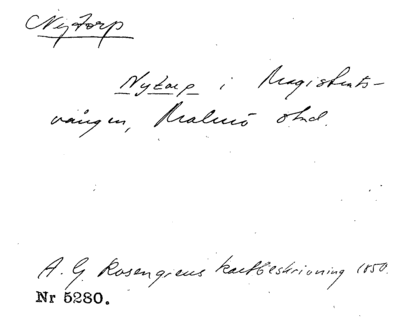 Nytorp
Nytorp i Magistrats-
vången, Malmö stad.
A. G. Rosengrens kartbeskrivning 1850.
Nr 5280.